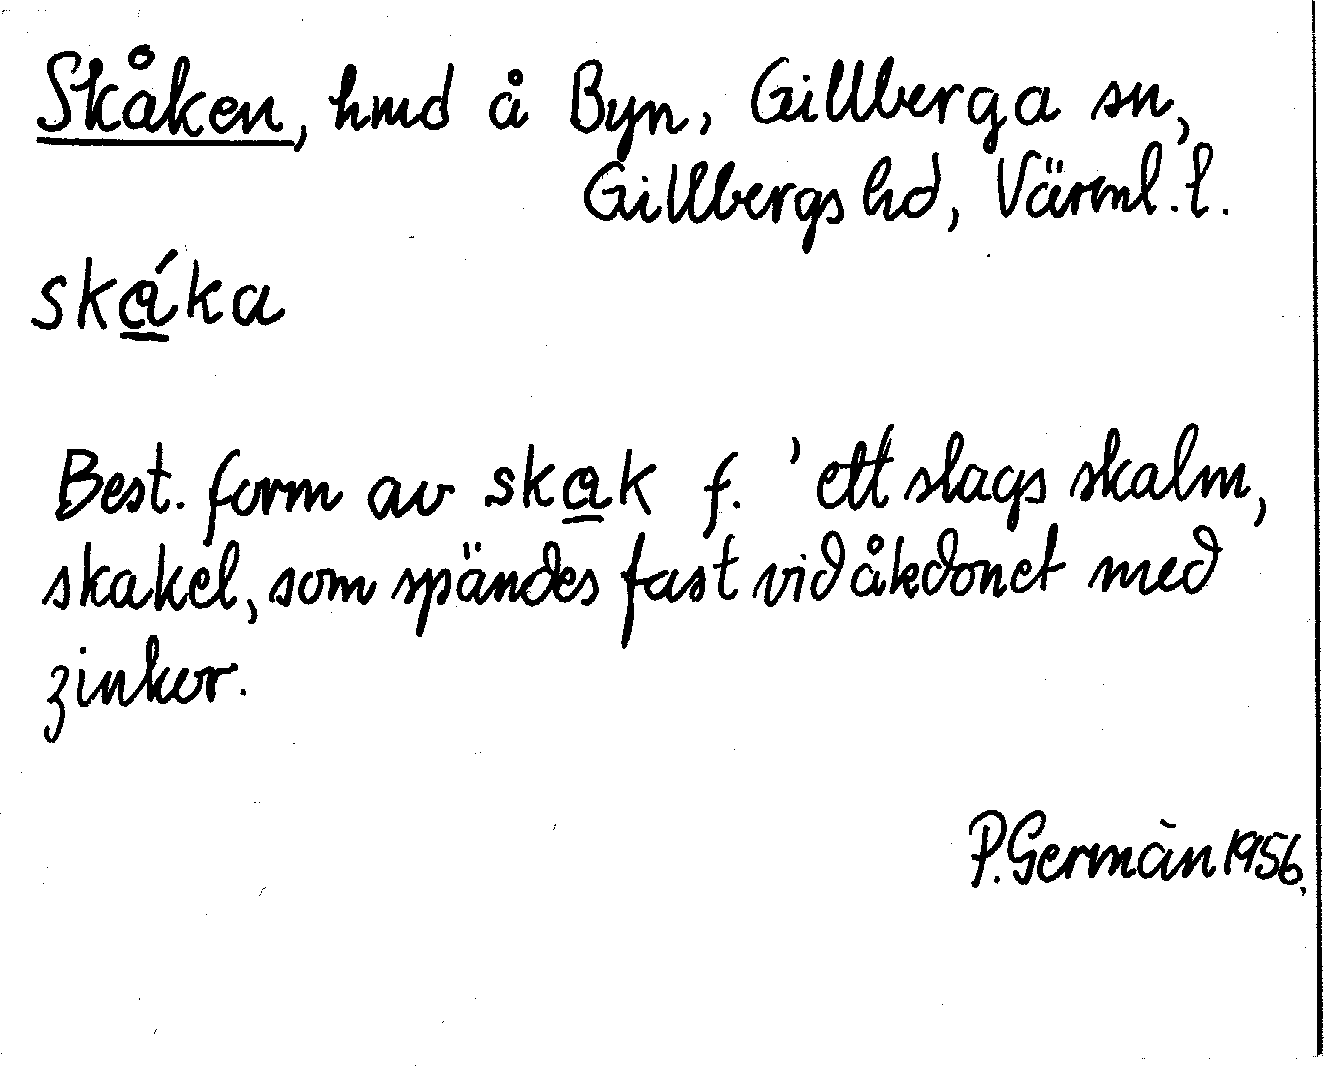 Skåken, hmd å Byn, Gillberga sn,
Gillbergs hd, Värml. l.
ská̲ka
Best. form av ska̲k f. 'ett slags skalm,
skakel, som spändes fast vid åkdonet med
zinkor.
P. Germàn 1956.